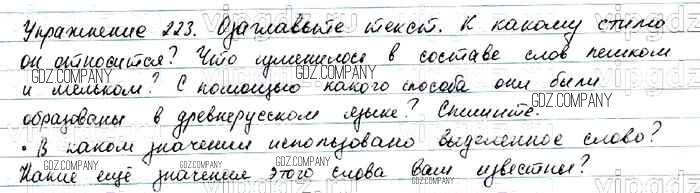 Упражнение 223. Озаглавьте текст. К какому стилю
он относится? Что изменилось в составе слов пешком
GDZ.COMPANY GDZ.COMPANY
и мельком? С помощью какого способа они были
GDZ.COMPANY
образованы в древнерусском языке? Спишите.
• В каком значении использовано выделенное слово?
GDZ.COMPANY GDZ.COMPANY
Какие ещё значения этого слова вам известны?